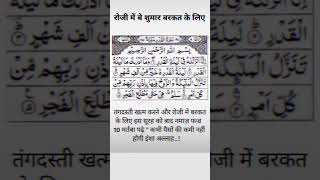 रोजी में बे शुमार बरकत के लिए
بِسْمِ اللهِ الرَّحْمٰنِ الرَّحِيْمِ
اِنَّاۤ اَنْزَلْنٰهُ فِيْ لَيْلَةِ الْقَدْرِ وَمَاۤ اَدْرٰىكَ مَا لَيْلَةُ
الْقَدْرِ لَيْلَةُ الْقَدْرِ خَيْرٌ مِّنْ اَلْفِ شَهْرٍ
تَنَزَّلُ الْمَلٰٓئِكَةُ وَالرُّوْحُ فِيْهَا بِاِذْنِ رَبِّهِمْ مِّنْ
كُلِّ اَمْرٍ سَلٰمٌ هِيَ حَتّٰى مَطْلَعِ الْفَجْرِ
तंगदस्ती खत्म करने और रोजी में बरकत
के लिए इस सूरह को बाद नमाज़ फज्र
10 मर्तबा पढ़े " कभी पैसों की कमी नहीं
होगी इंशा अल्लाह..!